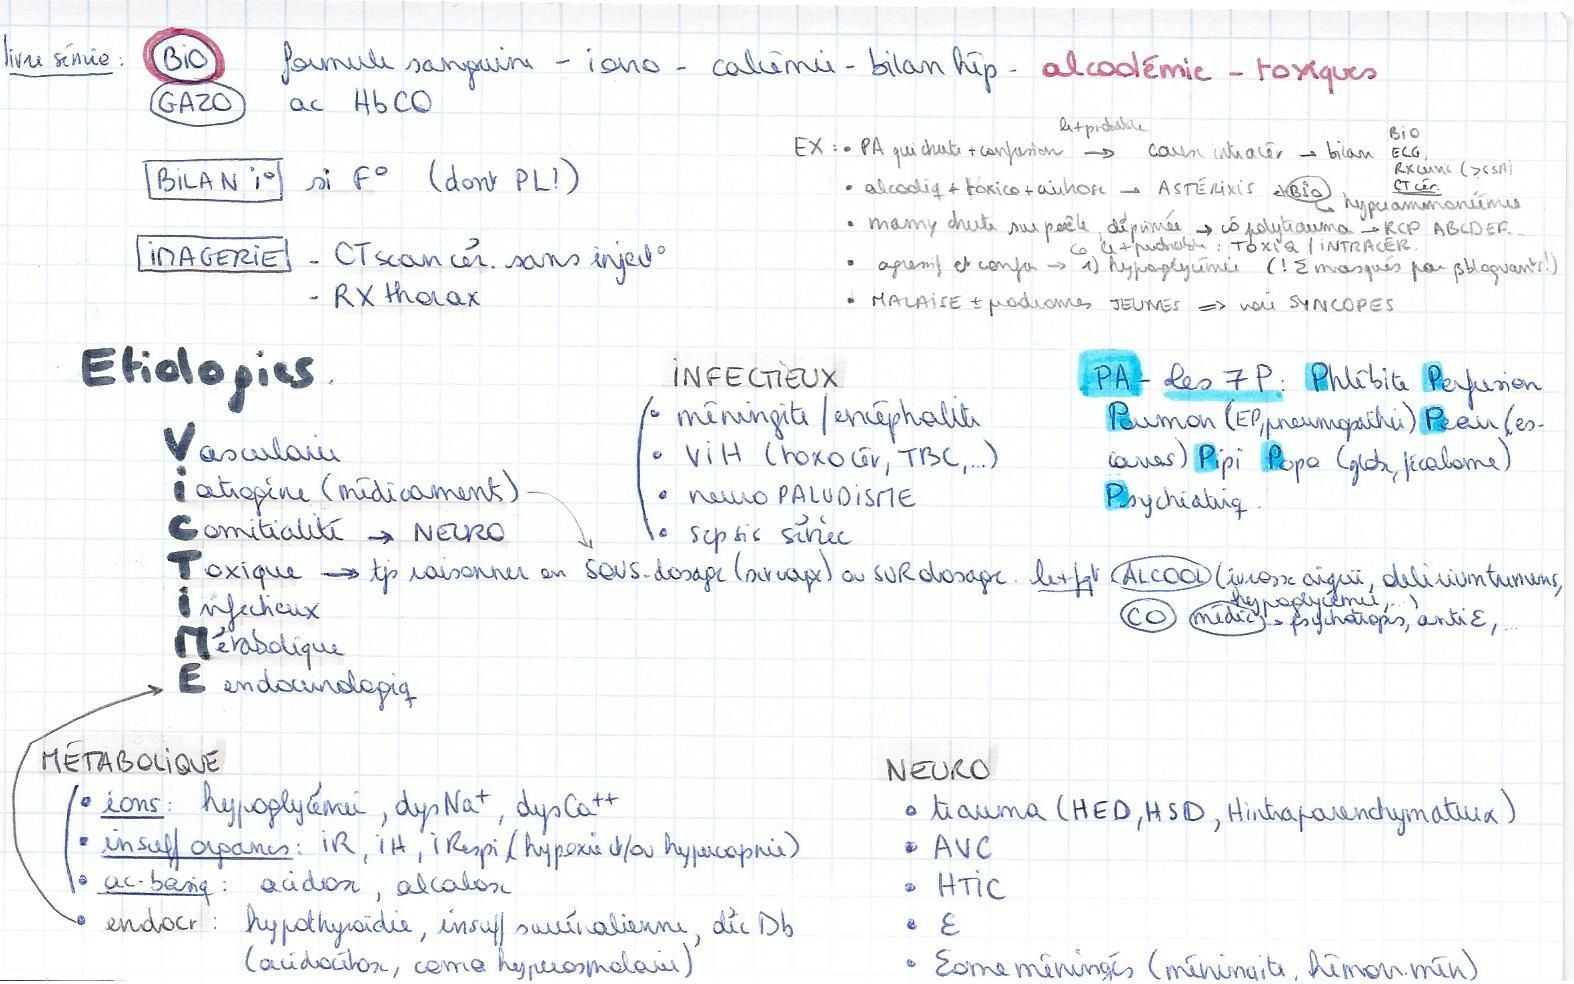 livre sémio : BiO formule sanguine - iono - calcémie - bilan hép - alcoolémie - toxiques
GAZO ac HbCO
BiLAN i° si F° (dont PL!)
iMAGERiE - CTscan cér. sans inject°
- RX thorax
le + probable
EX : • PA qui chute + confusion → cause intracér → bilan BiO
ECG,
RX crâne
CT cér.
• alcooliq + toxico + cirrhose → ASTÉRIXIS → BiO
↳ hyperammoniémie
• mamy chute sur poêle, déprimée → co polytrauma → RCP ABCDEF...
↳ le + probable : TOXIQ / INTRACÉR.
• agressif et confus → 1) hypoglycémie (! Σ masqués par βbloquants!)
• MALAISE ± prodromes JEUNES ⇒ voir SYNCOPES
Etiologies.
Vasculaire
iatrogène (médicament)
Comitialité → NEURO
Toxique → tjs raisonner en SOUS-dosage (sevrage) ou SURdosage. le + fqt ALCOOL (ivresse aiguë, delirium tremens,
hypoglycémie, ...)
CO médic → psychotropes, antiE, ...
infectieux
Métabolique
Endocrinologiq
iNFECTiEUX
• méningite / encéphalite
• ViH (toxo cér, TBC, ...)
• neuro PALUDiSME
• sepsis sévère
PA - les 7 P : Phlébite Perfusion
Poumon (EP, pneumopathie) Peau (es-
carres) Pipi Popo (glob, fécalome)
Psychiatriq.
MÉTABOLiQUE
• ions : hypoglycémie, dysNa+, dysCa++
• insuff organes : iR, iH, iRespi (hypoxie et/ou hypercapnie)
• ac-basiq : acidose, alcalose
• endocr : hypothyroïdie, insuff surrénalienne, déc Db
(acidocétose, coma hyperosmolaire)
NEURO
• trauma (HED, HSD, Hintraparenchymateux)
• AVC
• HTiC
• E
• Σome méningés (méningite, hémorr. mén)